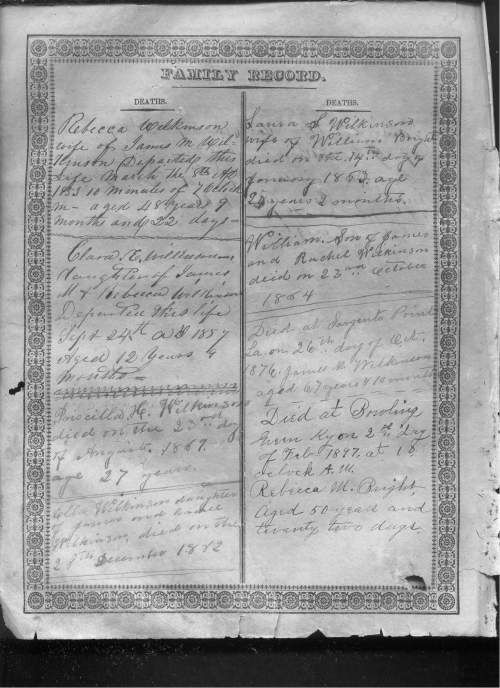 FAMILY RECORD.
DEATHS.
Rebecca Wilkinson
wife of James M Wil-
kinson Departed this
life March the 8th AD
10 minutes of 7 oclock
m - aged 48 years 9
months and 22 days -
Clara E. Wilkinson
Daughter of James
M & Rebecca Wilkinson
Departed this life
Sept 24th AD 1857
Aged 12 Years 4
Months -
Priscilla H. Wilkinson
died on the 23rd day
of August. 1869.
age 27 years.
Ella Wilkinson daughter
of James and
Wilkinson, died on the
December 1872
DEATHS.
Laura J Wilkinson
wife of William Bright
died on the 14th day of
January 1863. age
years 2 months.
William. Son of James
and Rachel Wilkinson
died on 23nd October
1864
Died at Sargents Point
La. on 26th day of Oct.
1876. James M. Wilkinson
aged 67 years & 10 months
Died at Bowling
Green Ky on 2nd day
of Feb 1897. at
oclock A.M.
Rebecca M. Bright,
Aged 50 years and
twenty two days.